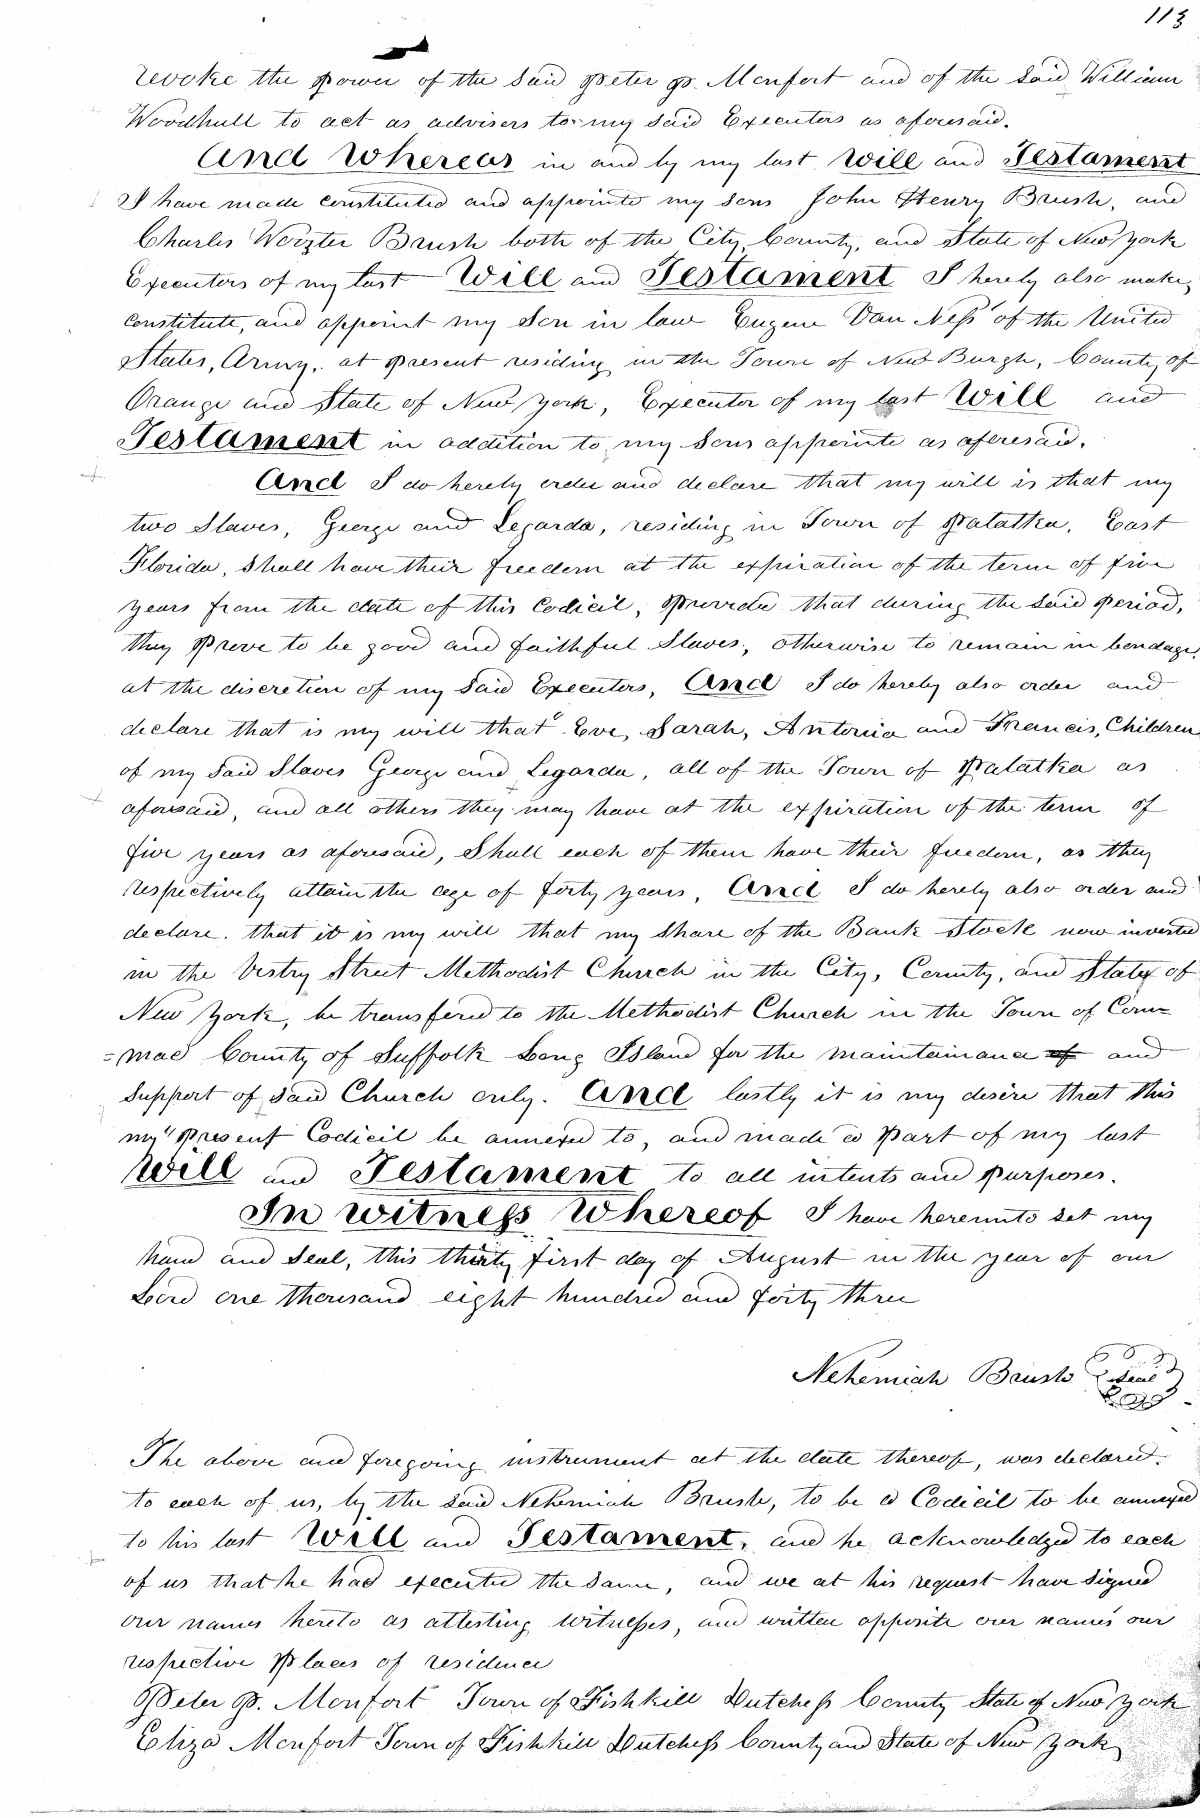 113
revoke the power of the said Peter P. Monfort and of the said William
Woodhull to act as advisers to my said Executors as aforesaid.
And Whereas in and by my last Will and Testament
I have made constituted and appointed my sons John Henry Brush, and
Charles Brush both of the City, County, and State of New York
Executors of my last Will and Testament I hereby also make,
constitute, and appoint my Son in law Eugene Van Ness of the United
States, Army, at present residing in the Town of New Burgh, County of
Orange and State of New York, Executor of my last Will and
Testament in addition to my Sons appointed as aforesaid.
And I do hereby order and declare that my will is that my
two Slaves, George and Legarda, residing in Town of Palatka, East
Florida, Shall have their freedom at the expiration of the term of five
years from the date of this Codicil, Provided that during the said period,
they prove to be good and faithful Slaves, otherwise to remain in bondage,
at the discretion of my said Executors, And I do hereby also order and
declare that is my will that Eve, Sarah, Antonia and Francis, Children
of my said Slaves George and Legarda, all of the Town of Palatka as
aforesaid, and all others they may have at the expiration of the term of
five years as aforesaid, Shall each of them have their freedom, as they
respectively attain the age of forty years, And I do hereby also order and
declare. that it is my will that my Share of the Bank Stock now invested
in the Vestry Street Methodist Church in the City, County, and State of
New York, be transfered to the Methodist Church in the Town of Com=
=mac County of Suffolk Long Island for the maintainance of and
Support of said Church only. And lastly it is my desire that this
my present Codicil be annexed to, and made a Part of my last
Will and Testament to all intents and purposes.
In witness Whereof I have hereunto set my
hand and Seal, this thirty first day of August in the year of our
Lord one thousand eight hundred and forty three
Nehemiah Brush Seal
The above and foregoing instrument at the date thereof, was declared.
to each of us, by the said Nehemiah Brush, to be a Codicil to be annexed
to his last Will and Testament, and he acknowledged to each
of us that he had executed the same, and we at his request have signed
our names hereto as attesting witnesses, and written opposite our names our
respective places of residence
Peter P. Monfort Town of Fishkill Dutchess County State of New York
Eliza Monfort Town of Fishkill Dutchess County and State of New York,